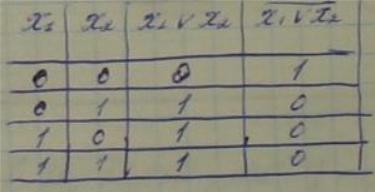 x₁ x₂ x₁ ∨ x₂ x̅₁̅ ̅∨̅ ̅x̅₂̅
0 0 0 1
0 1 1 0
1 0 1 0
1 1 1 0